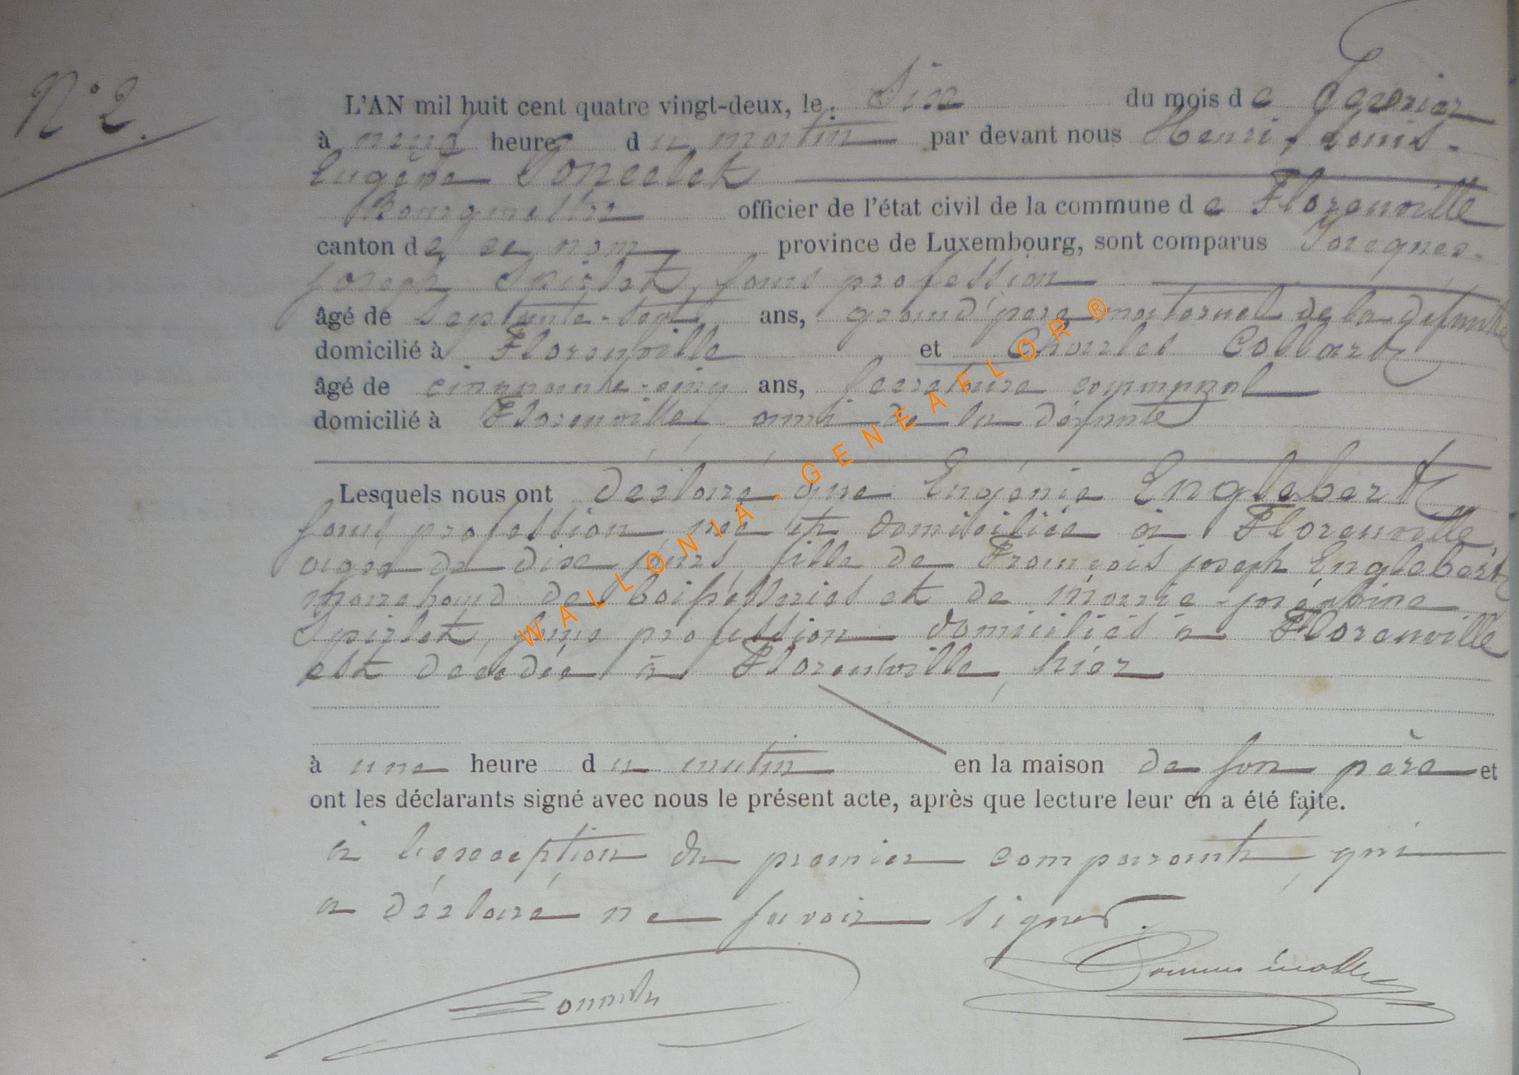 N° 2.
L'AN mil huit cent quatre vingt-deux, le: Six du mois de Janvier
à neuf heures du matin par devant nous Henri, Louis.
Eugène Poncelet
Bourgmestre officier de l'état civil de la commune de Florenville
canton de ce nom province de Luxembourg, sont comparus Jacques.
Joseph Spirlet, sans profession
âgé de Septante-sept ans, grand'père maternel de la défunte
domicilié à Florenville et Charles Collart
âgé de cinquante-cinq ans, secrétaire communal
domicilié à Florenville, ami de la défunte
Lesquels nous ont déclaré que Eugénie Englebert
sans profession née et domiciliée à Florenville,
agée de dix jours, fille de François Joseph Englebert
marchand de boisselleries et de Marie-
Spirlet, sans profession domiciliés à Florenville
est décédée à Florenville, hier
à une heure du matin en la maison de son père et
ont les déclarants signé avec nous le présent acte, après que lecture leur en a été faite.
à l'exception du premier comparant, qui
a déclaré ne savoir signer.
WALLONIA-GENEAFLOR®